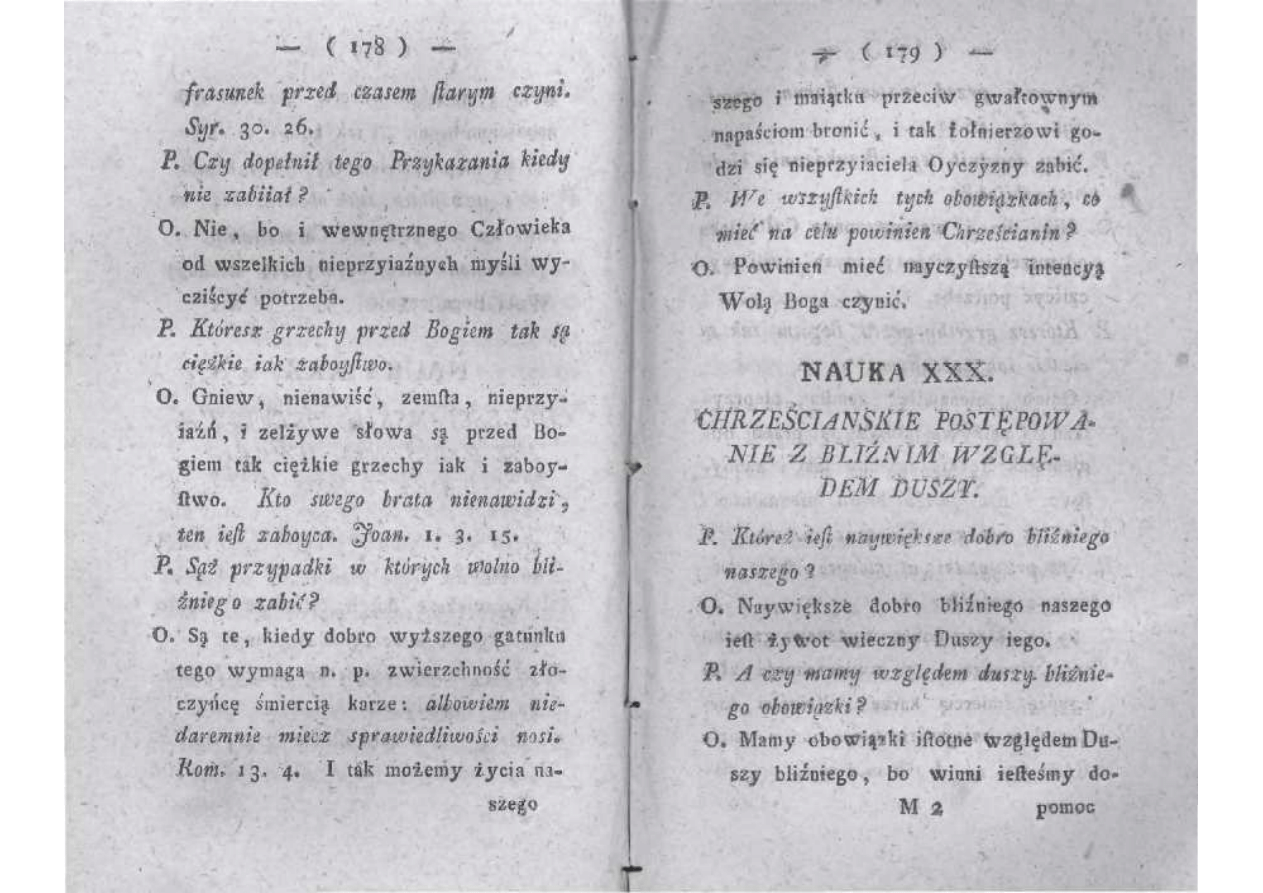 — ( 178 ) —
frasunek przed czasem ſtarym czyni.
Syr. 30. 26.
P. Czy dopełnił tego Przykazania kiedy
nie zabiiał ?
O. Nie, bo i wewnętrznego Człowieka
od wszelkich nieprzyiaźnych myśli wy-
cziścyć potrzeba.
P. Któresz grzechy przed Bogiem tak są
ciężkie iak zaboyſtwo.
O. Gniew, nienawiść, zemſta, nieprzy-
iaźń, i zelżywe słowa są przed Bo-
giem tak ciężkie grzechy iak i zaboy-
ſtwo. Kto swego brata nienawidzi,
ten ieſt zaboyca. Joan. 1. 3. 15.
P. Sąż przypadki w których wolno bli-
źniego zabić?
O. Są te, kiedy dobro wyższego gatunku
tego wymaga n. p. zwierzchność zło-
czyńcę śmiercią karze: albowiem nie-
daremnie miecz sprawiedliwości nosi.
Rom. 13. 4. I tak możemy życia na-
szego
— ( 179 ) —
szego i maiątku przeciw gwałtownym
napaściom bronić, i tak żołnierzowi go-
dzi się nieprzyiaciela Oyczyzny zabić.
P. We wszyſtkich tych obowiązkach, co
mieć na celu powinien Chrześcianin?
O. Powinien mieć nayczyſtszą intencyą
Wolą Boga czynić.
NAUKA XXX.
CHRZEŚCIANSKIE POSTĘPOWA-
NIE Z BLIŹNIM WZGLĘ-
DEM DUSZY.
P. Któreż ieſt naywiększe dobro bliźniego
naszego ?
O. Naywiększe dobro bliźniego naszego
ieſt żywot wieczny Duszy iego.
P. A czy mamy względem duszy bliźnie-
go obowiązki?
O. Mamy obowiązki iſtotne względem Du-
szy bliźniego, bo winni ieſteśmy do-
M 2 pomoc